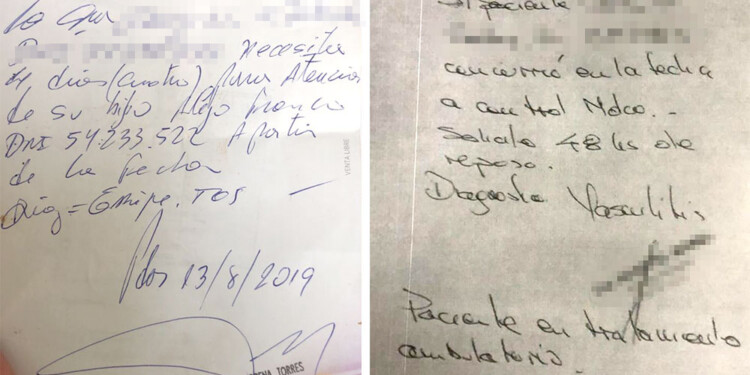 La Sra
Necesita
4 dias (cuatro) para Atencion
de su hijo
DNI 54.233.522 A partir
de la fecha
Diag = Gripe. TOS
13/8/2019
TORRES
VENTA LIBRE
El paciente
concurrió en la fecha
a control Mdco.-
Solicito 48 hs de
reposo.
Diagnostico Vasculitis
Paciente en tratamiento
ambulatorio.